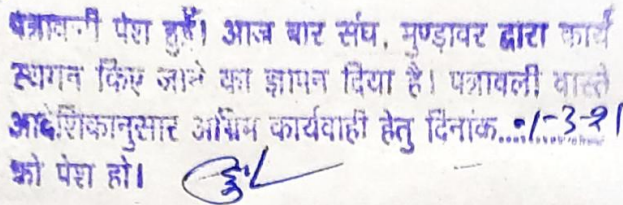 पत्रावली पेश हुई। आज बार संघ, मुण्डावर द्वारा कार्य
स्थगन किए जाने का ज्ञापन दिया है। पत्रावली वास्ते
आदेशिकानुसार अग्रिम कार्यवाही हेतु दिनांक.....1-3-21
को पेश हो।